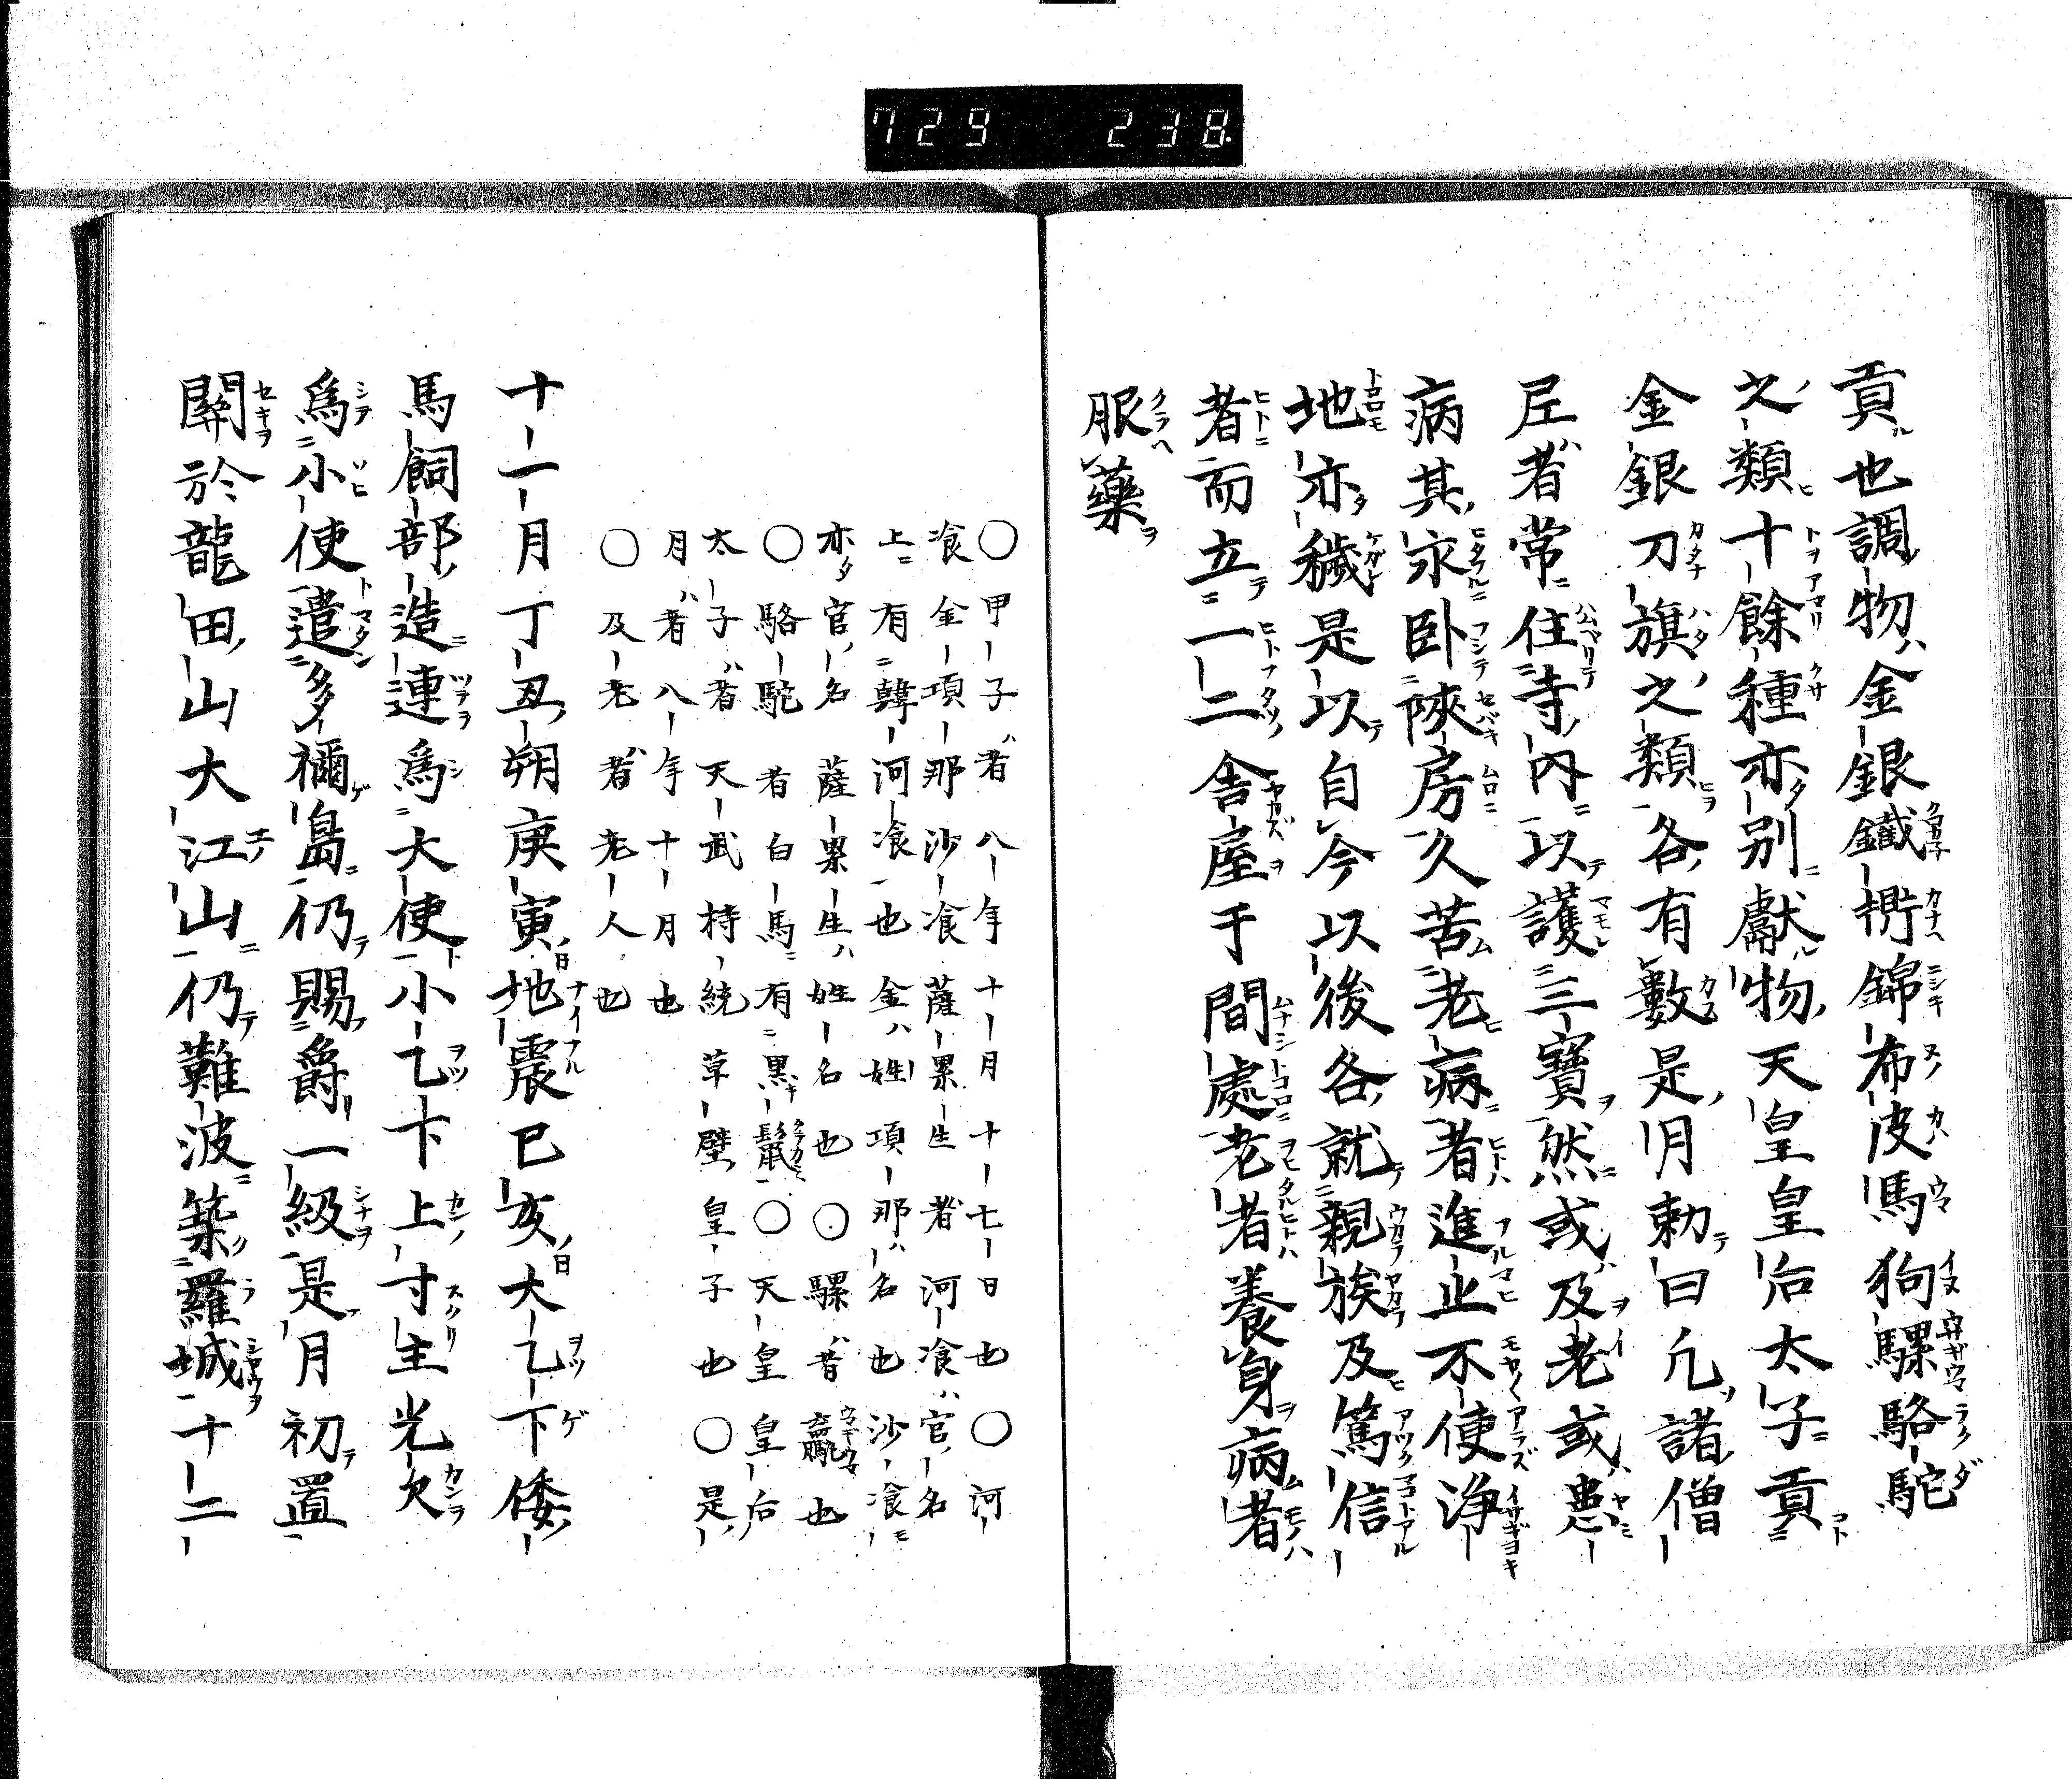 729 238
貢也調物金銀鐵鼎錦布皮馬狗騾駱駝
之類十餘種亦別獻物天皇皇后太子貢
金銀刀旗之類各有數是月勅曰凡諸僧
尼者常住寺内以護三寶然或及老或患
病其永臥陜房久苦老病者進止不便浄
地亦穢是以自今以後各就親族及篤信
者而立一二舎屋于間處老者養身病者
服藥
○甲子者八年十月十七日也○河
飡金項那沙飡薩累生者河飡官名
上有韓河飡也金姓項那名也沙飡
亦官名薩累生姓名也○騾者驘也
○駱駝者白馬有黒鬣○天皇皇后
太子者天武持統草壁皇子也○是
月者八年十月也
○及老者老人也
十一月丁丑朔庚寅地震己亥大乙下倭
馬飼部造連爲大使小乙下上寸主光欠
爲小使遣多禰島仍賜爵一級是月初置
關於龍田山大江山仍難波築羅城十二